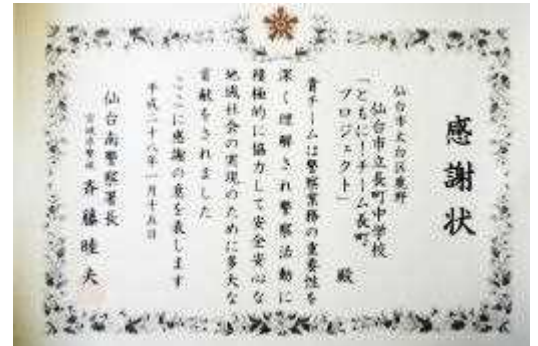 感謝状
仙台市太白区鹿野
仙台市立長町中学校
「ともに!チーム長町
プロジェクト」 殿
貴チームは警察業務の重要性を
深く理解され警察活動に
積極的に協力して安全安心な
地域社会の実現のために多大な
貢献をされました
ここに感謝の意を表します
平成二十八年一月十五日
仙台南警察署長
宮城県警視 斉藤睦夫